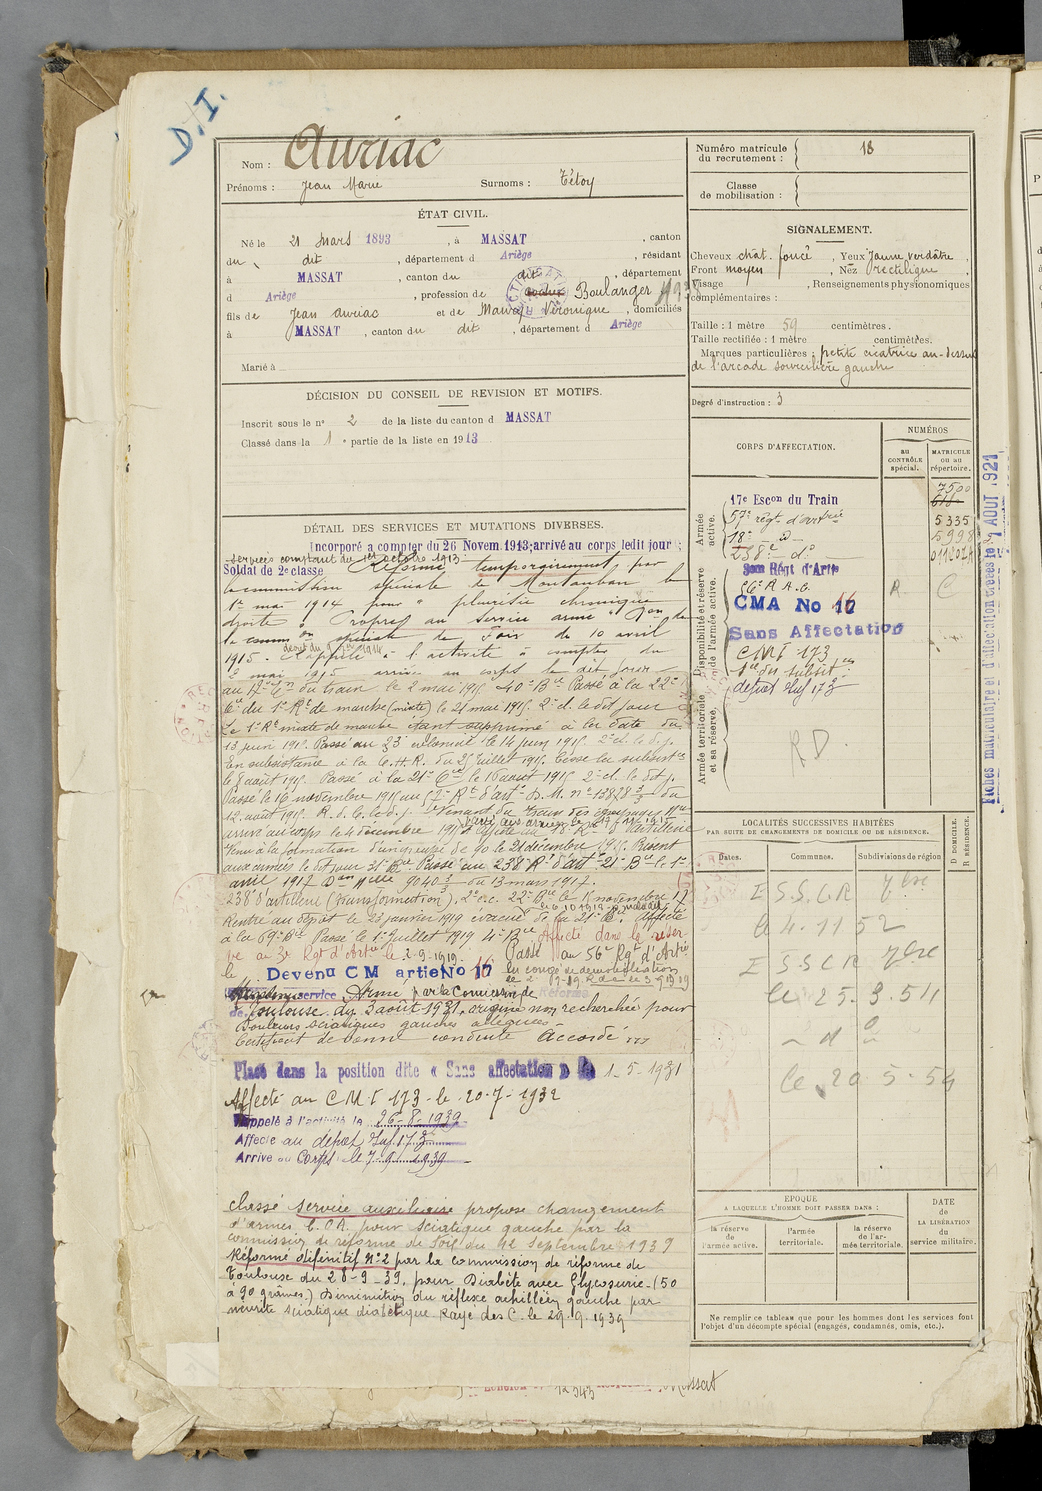 D.I.
Nom : Auriac
Prénoms : Jean Marie Surnoms : Tétoy
ÉTAT CIVIL.
Né le 21 Mars 1893, à MASSAT, canton
du dit, département d Ariège, résidant
à MASSAT, canton du dit, département
d Ariège, profession de Boulanger
fils de Jean Auriac et de Véronique, domiciliés
à MASSAT, canton du dit, département d Ariège
Marié à
DÉCISION DU CONSEIL DE REVISION ET MOTIFS.
Inscrit sous le n° 2 de la liste du canton d MASSAT
Classé dans la 1e partie de la liste en 1913
DÉTAIL DES SERVICES ET MUTATIONS DIVERSES.
Incorporé a compter du 26 Novem. 1913; arrivé au corps ledit jour;
Services comptant du 1er octobre 1913.
Soldat de 2e classe Réformé temporairement par
la commission spéciale de Montauban le
1er mai 1914 pour " pleurésie chronique
droite " Propre au service armé " Don de
la comm on spéciale de Foix du 10 avril
1915. Rappelé à l'activité à compter du
2 mai 1915 arrivé au corps le dit jour
au 17e Eon du train le 2 mai 1915. Passé à la 22e
Cie du 1er Rt de marche (mixte) le 21 mai 1915. 2e cl. le dit jour
Le 1er Rt mixte de marche étant supprimé à la date du
13 juin 1915. Passé au 23e colonial le 14 juin 1915. 2e cl. le d. j.
En subsistance à la C.H.R. du 25 juillet 1915. Cesse la subsistce
le 8 août 1915. Passé à la 21e Cie le 16 août 1915 2e cl. le dit j.
Passé le 16 novembre 1915 au 57e Rt d'arte D.M. n° 13878 3/3 du
12 août 1915. R. d. C. le d. j. Venant du train des équipages mre
arrivé au corps le 4 décembre 1915 affecté au 18e Rt d'artillerie
Venu à la formation d'un groupe de 90 le 21 décembre 1915. Présent
aux armées le dit jour 31e Bie Passé au 238e Rt d'art 21e Bie le 1er
avril 1917 Don Mlle 9040 3/3 du 13 mars 1917.
238e d'artillerie (transformation), 2e c.c. 22e Bie le 1 novembre 17
Rentré au dépôt le 23 janvier 1919 évacué de la 21e Bie. Affecté
à la 69e Bie Passé le 1er juillet 1919 4e Bie Affecté dans la réser-
ve au 3e Rgt d'Artie le 2-9-1919. Passé au 56e Rgt d'Artie
le Devenu CM artie No 17 16 en congé de démobilisation
service Armé par la Commission de Réforme
de Toulouse du 3 août 1921, origine non recherchée pour
Douleurs sciatiques gauches alléguées
Certificat de bonne conduite Accordé
Placé dans la position dite « Sans affectation » le 1-5-1931
Affecté au CMI 173 le 20-7-1932
Rappelé à l'activité le 26-8-1939
Affecté au dépôt Inf. 173
Arrivé au Corps le 7-9-1939
Classé service auxiliaire propose changement
d'armes C.O.A. pour sciatique gauche par la
commission de réforme de Foix du 12 septembre 1939
Réformé définitif N°2 par la commission de réforme de
Toulouse du 28-9-39. pour Diabète avec Glycosurie (50
à 90 grammes.) Diminution du réflexe achilléen gauche par
névrite sciatique diabétique Rayé des C. le 29.9.1939
Massat
Numéro matricule du recrutement : 18
Classe de mobilisation :
SIGNALEMENT.
Cheveux chât. foncé, Yeux Jaune verdâtre,
Front moyen, Nez rectiligne
Visage, Renseignements physionomiques
complémentaires :
Taille : 1 mètre 59 centimètres.
Taille rectifiée : 1 mètre centimètres.
Marques particulières : petite cicatrice au-dessus
de l'arcade sourcilière gauche
Degré d'instruction : 3
CORPS D'AFFECTATION.
NUMÉROS
au CONTRÔLE spécial.
MATRICULE ou au répertoire.
Armée active.
17e Escon du Train
57e régt d'artrie
18e - D -
238e - do
3me Régt d'Artie
7500
5335
5998
Disponibilité et réserve de l'armée active.
56e R.A.C.
CMA No 17 16
Sans Affectation
R.
C
Armée territoriale et sa réserve.
CMI 173
dépôt Inf 173
RD.
Fiches matriculaire et d'affectation créées le 7 AOUT 1921
LOCALITÉS SUCCESSIVES HABITÉES
PAR SUITE DE CHANGEMENTS DE DOMICILE OU DE RÉSIDENCE.
Dates.
Communes.
Subdivisions de région
D DOMICILE.
R RÉSIDENCE.
le 4.11 52
le 25.3.54
le 20 5-54
ÉPOQUE
A LAQUELLE L'HOMME DOIT PASSER DANS :
la réserve de l'armée active.
l'armée territoriale.
la réserve de l'armée territoriale.
DATE
de
LA LIBÉRATION
du
service militaire.
Ne remplir ce tableau que pour les hommes dont les services font
l'objet d'un décompte spécial (engagés, condamnés, omis, etc.).